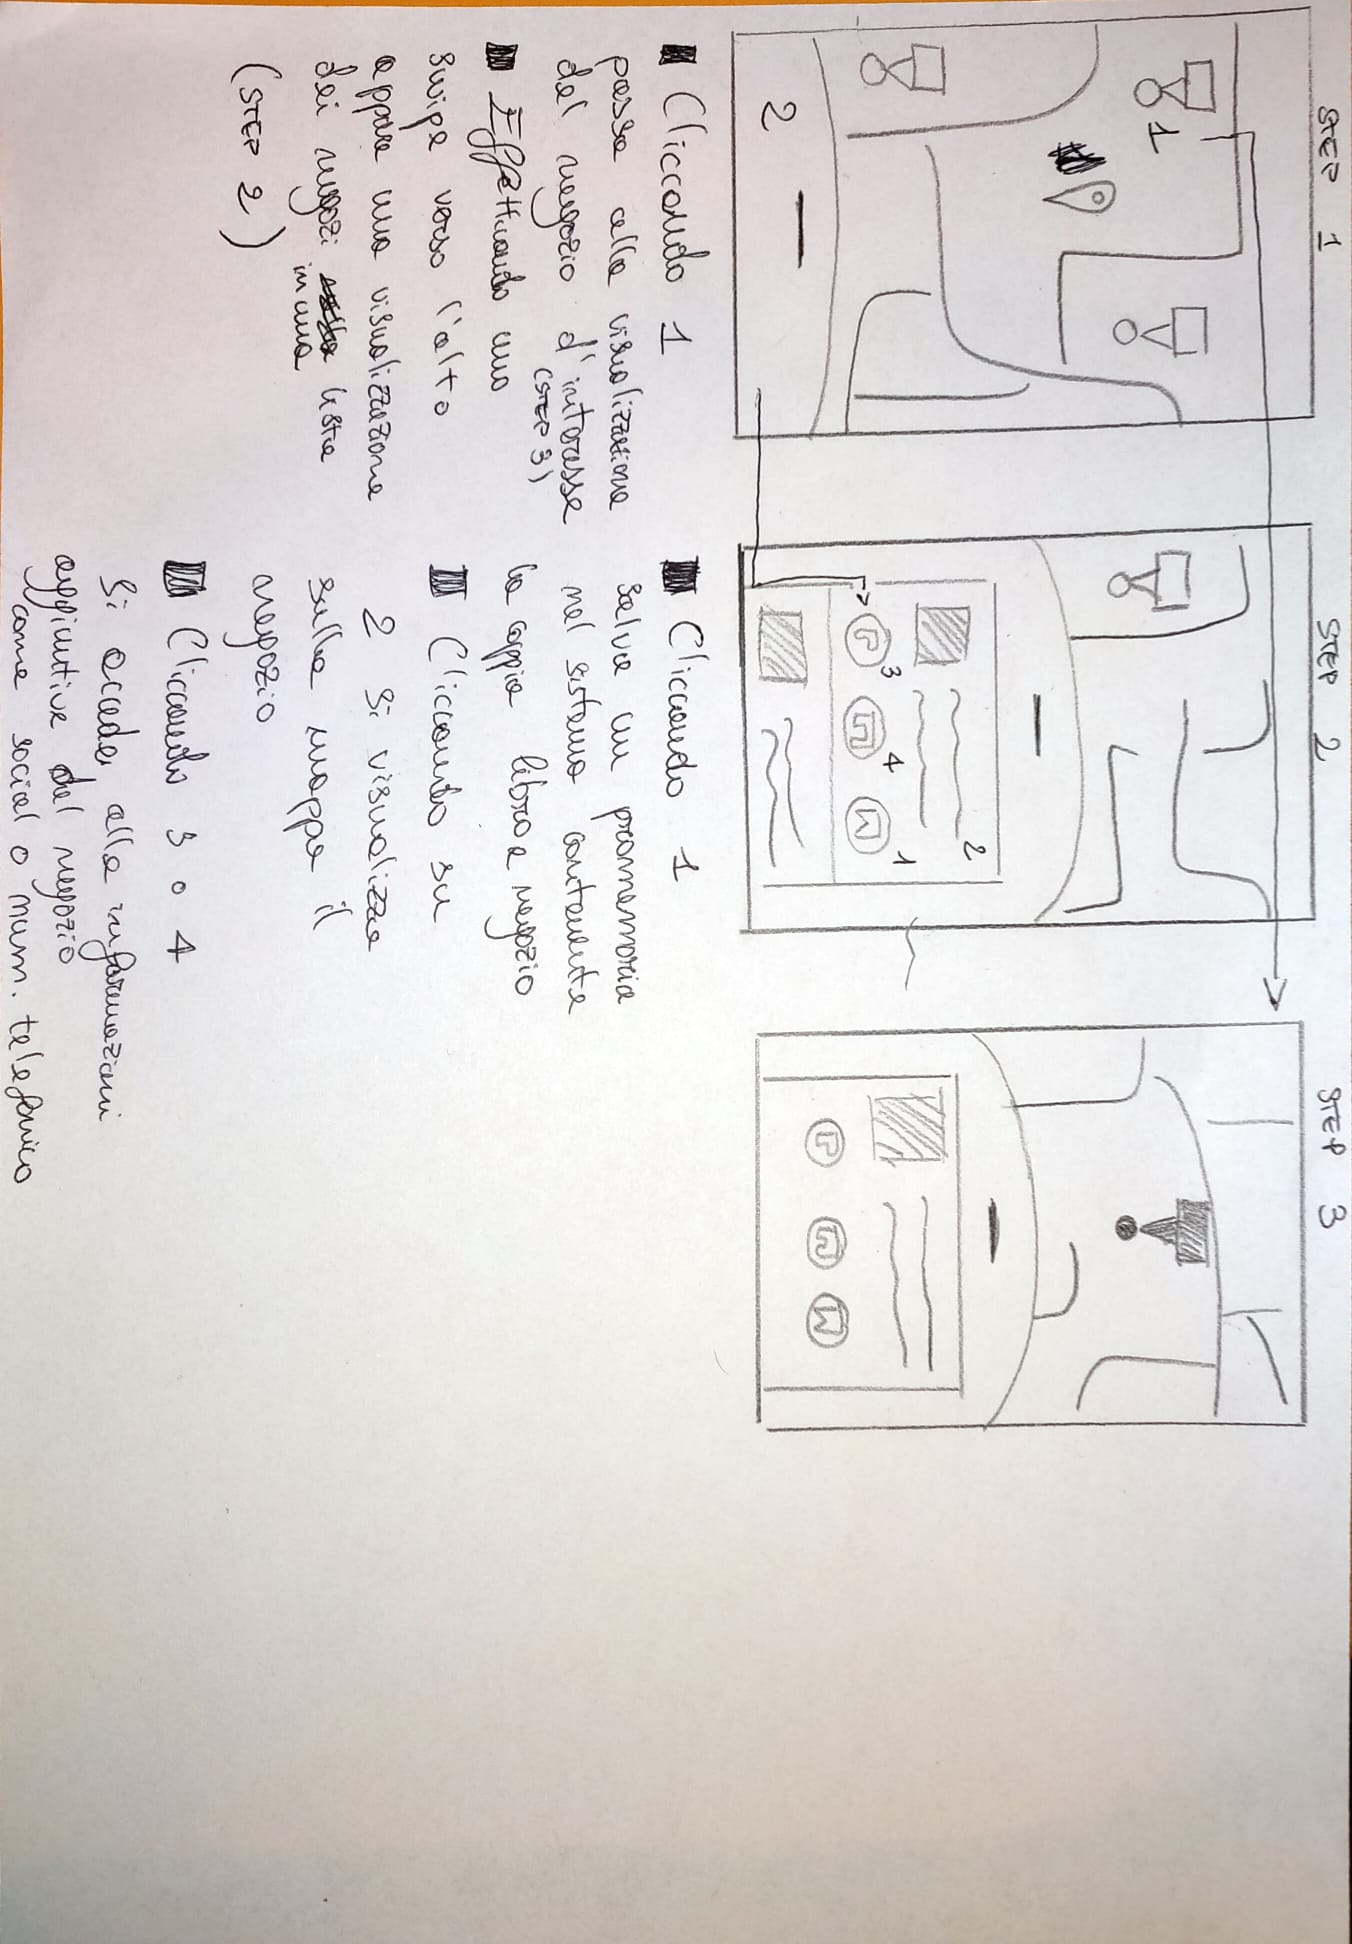 STEP 1
1
2
STEP 2
2
3
4
1
STEP 3
Cliccando 1
passa alla visualizzazione
del negozio d'interesse
(STEP 3)
Effettuando uno
swipe verso l'alto
appare una visualizzazione
dei negozi in una lista
(STEP 2)
Cliccando 1
salva un promemoria
nel sistema contenente
la coppia libro e negozio
Cliccando su
2 si visualizza
sulla mappa il
negozio
Cliccando 3 o 4
Si accede alle informazioni
aggiuntive del negozio
come social o num. telefonico